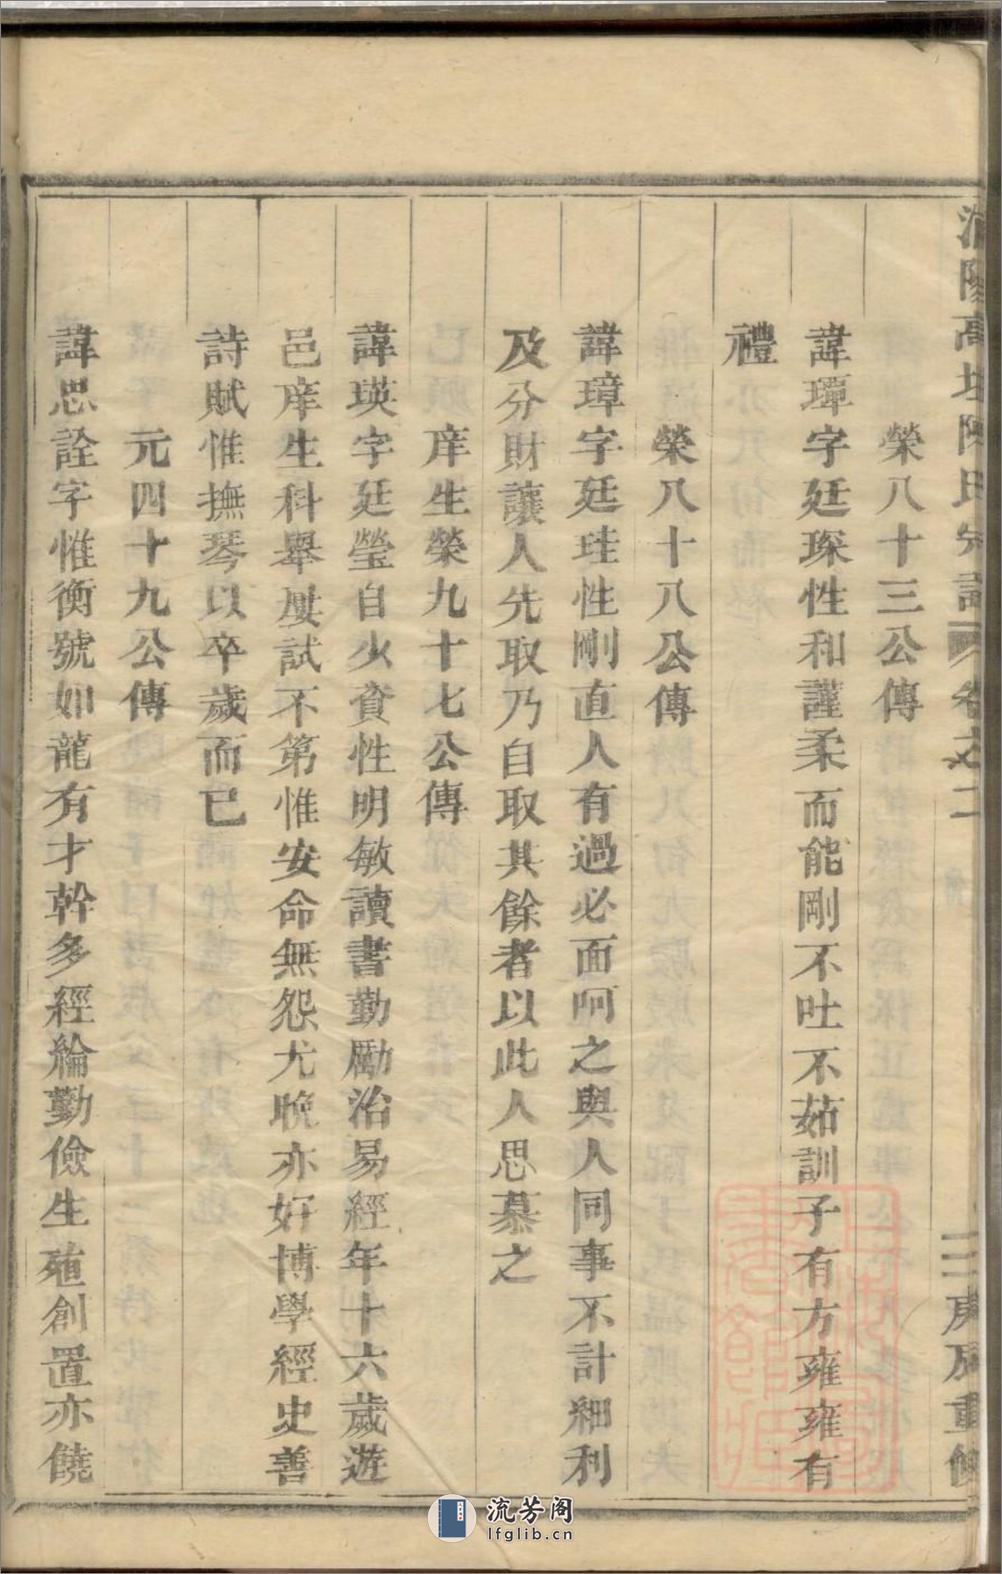 榮八十三公傳
諱璍字廷琛性和謹柔而能剛不吐不茹訓子有方雍雍有
禮
榮八十八公傳
諱璋字廷珪性剛直人有過必面呵之與人同事不計細利
及分財讓人先取乃自取其餘者以此人思慕之
庠生榮九十七公傳
諱瑛字廷瑩自少貧性明敏讀書勤勵治易經年十六歲遊
邑庠生科舉屢試不第惟安命無怨尤晚亦好博學經史善
詩賦惟撫琴以卒歲而已
元四十九公傳
諱思詮字惟衡號如龍有才幹多經綸勤儉生殖創置亦饒
陽高陳氏宗譜 卷之二 三 庚辰重修
流芳阁
lfglib.cn